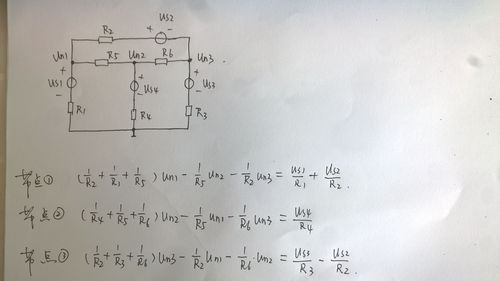 Us2
R2
+ -
Un1 R5 Un2 R6 Un3
+ + +
Us1 - Us4 Us3
- -
R1 R4 R3
节点① (1/R2 + 1/R1 + 1/R5) Un1 - 1/R5 Un2 - 1/R2 Un3 = Us1/R1 + Us2/R2
节点② (1/R4 + 1/R5 + 1/R6) Un2 - 1/R5 Un1 - 1/R6 Un3 = Us4/R4
节点③ (1/R2 + 1/R3 + 1/R6) Un3 - 1/R2 Un1 - 1/R6 · Un2 = Us3/R3 - Us2/R2.